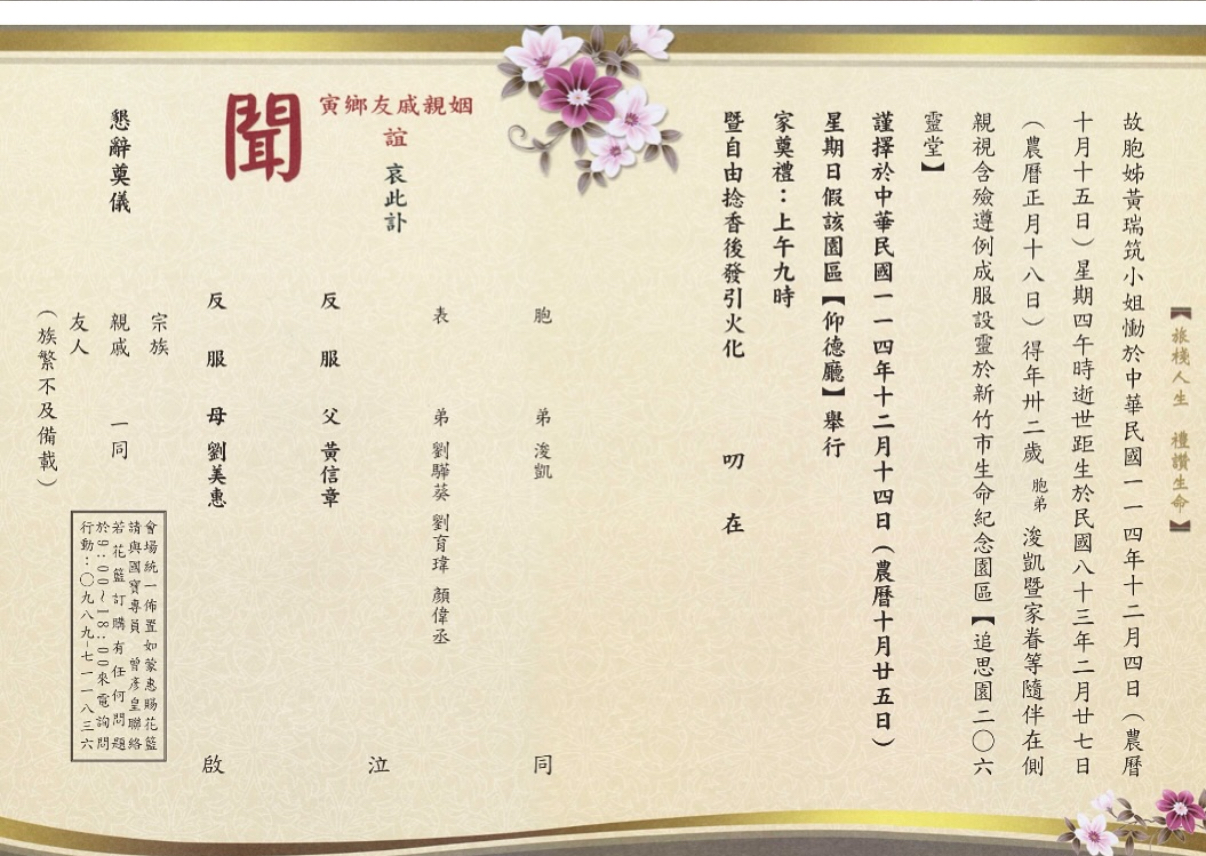 【旅棧人生　禮讚生命】
故胞姊黃瑞筑小姐慟於中華民國一一四年十二月四日（農曆
十月十五日）星期四午時逝世距生於民國八十三年二月廿七日
（農曆正月十八日）得年卅二歲　胞弟　浚凱暨家眷等隨伴在側
親視含殮遵例成服設靈於新竹市生命紀念園區【追思園二〇六
靈堂】
謹擇於中華民國一一四年十二月十四日（農曆十月廿五日）
星期日假該園區【仰德廳】舉行
家奠禮：上午九時
暨自由捻香後發引火化　叨在
寅鄉友戚親姻
誼　哀此訃
聞
胞弟　浚凱
表弟　劉驊葵　劉育瑋　顏偉丞
反服父　黃信章
反服母　劉美惠
同
泣
啟
懇辭奠儀
宗族
親戚　一同
友人
（族繁不及備載）
會場統一佈置如蒙惠賜花籃
請與國寶專員　曾彥皇聯絡
若花籃訂購有任何問題
於9:00~18:00來電詢問
行動：〇九八九-七一一八三六